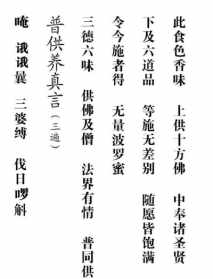 此食色香味 上供十方佛 中奉诸圣贤
下及六道品 等施无差别 随愿皆饱满
令今施者得 无量波罗蜜
三德六味 供佛及僧 法界有情 普同供
普供养真言（三遍）
唵 誐誐曩 三婆缚 伐日啰斛